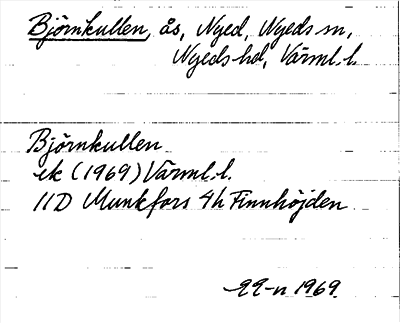 Björnkullen, ås, Nyed, Nyeds sn,
Nyeds hd, Värml. l.
Björnkullen
ek (1969) Värml. l.
11D Munkfors 4h Finnhöjden
1969.